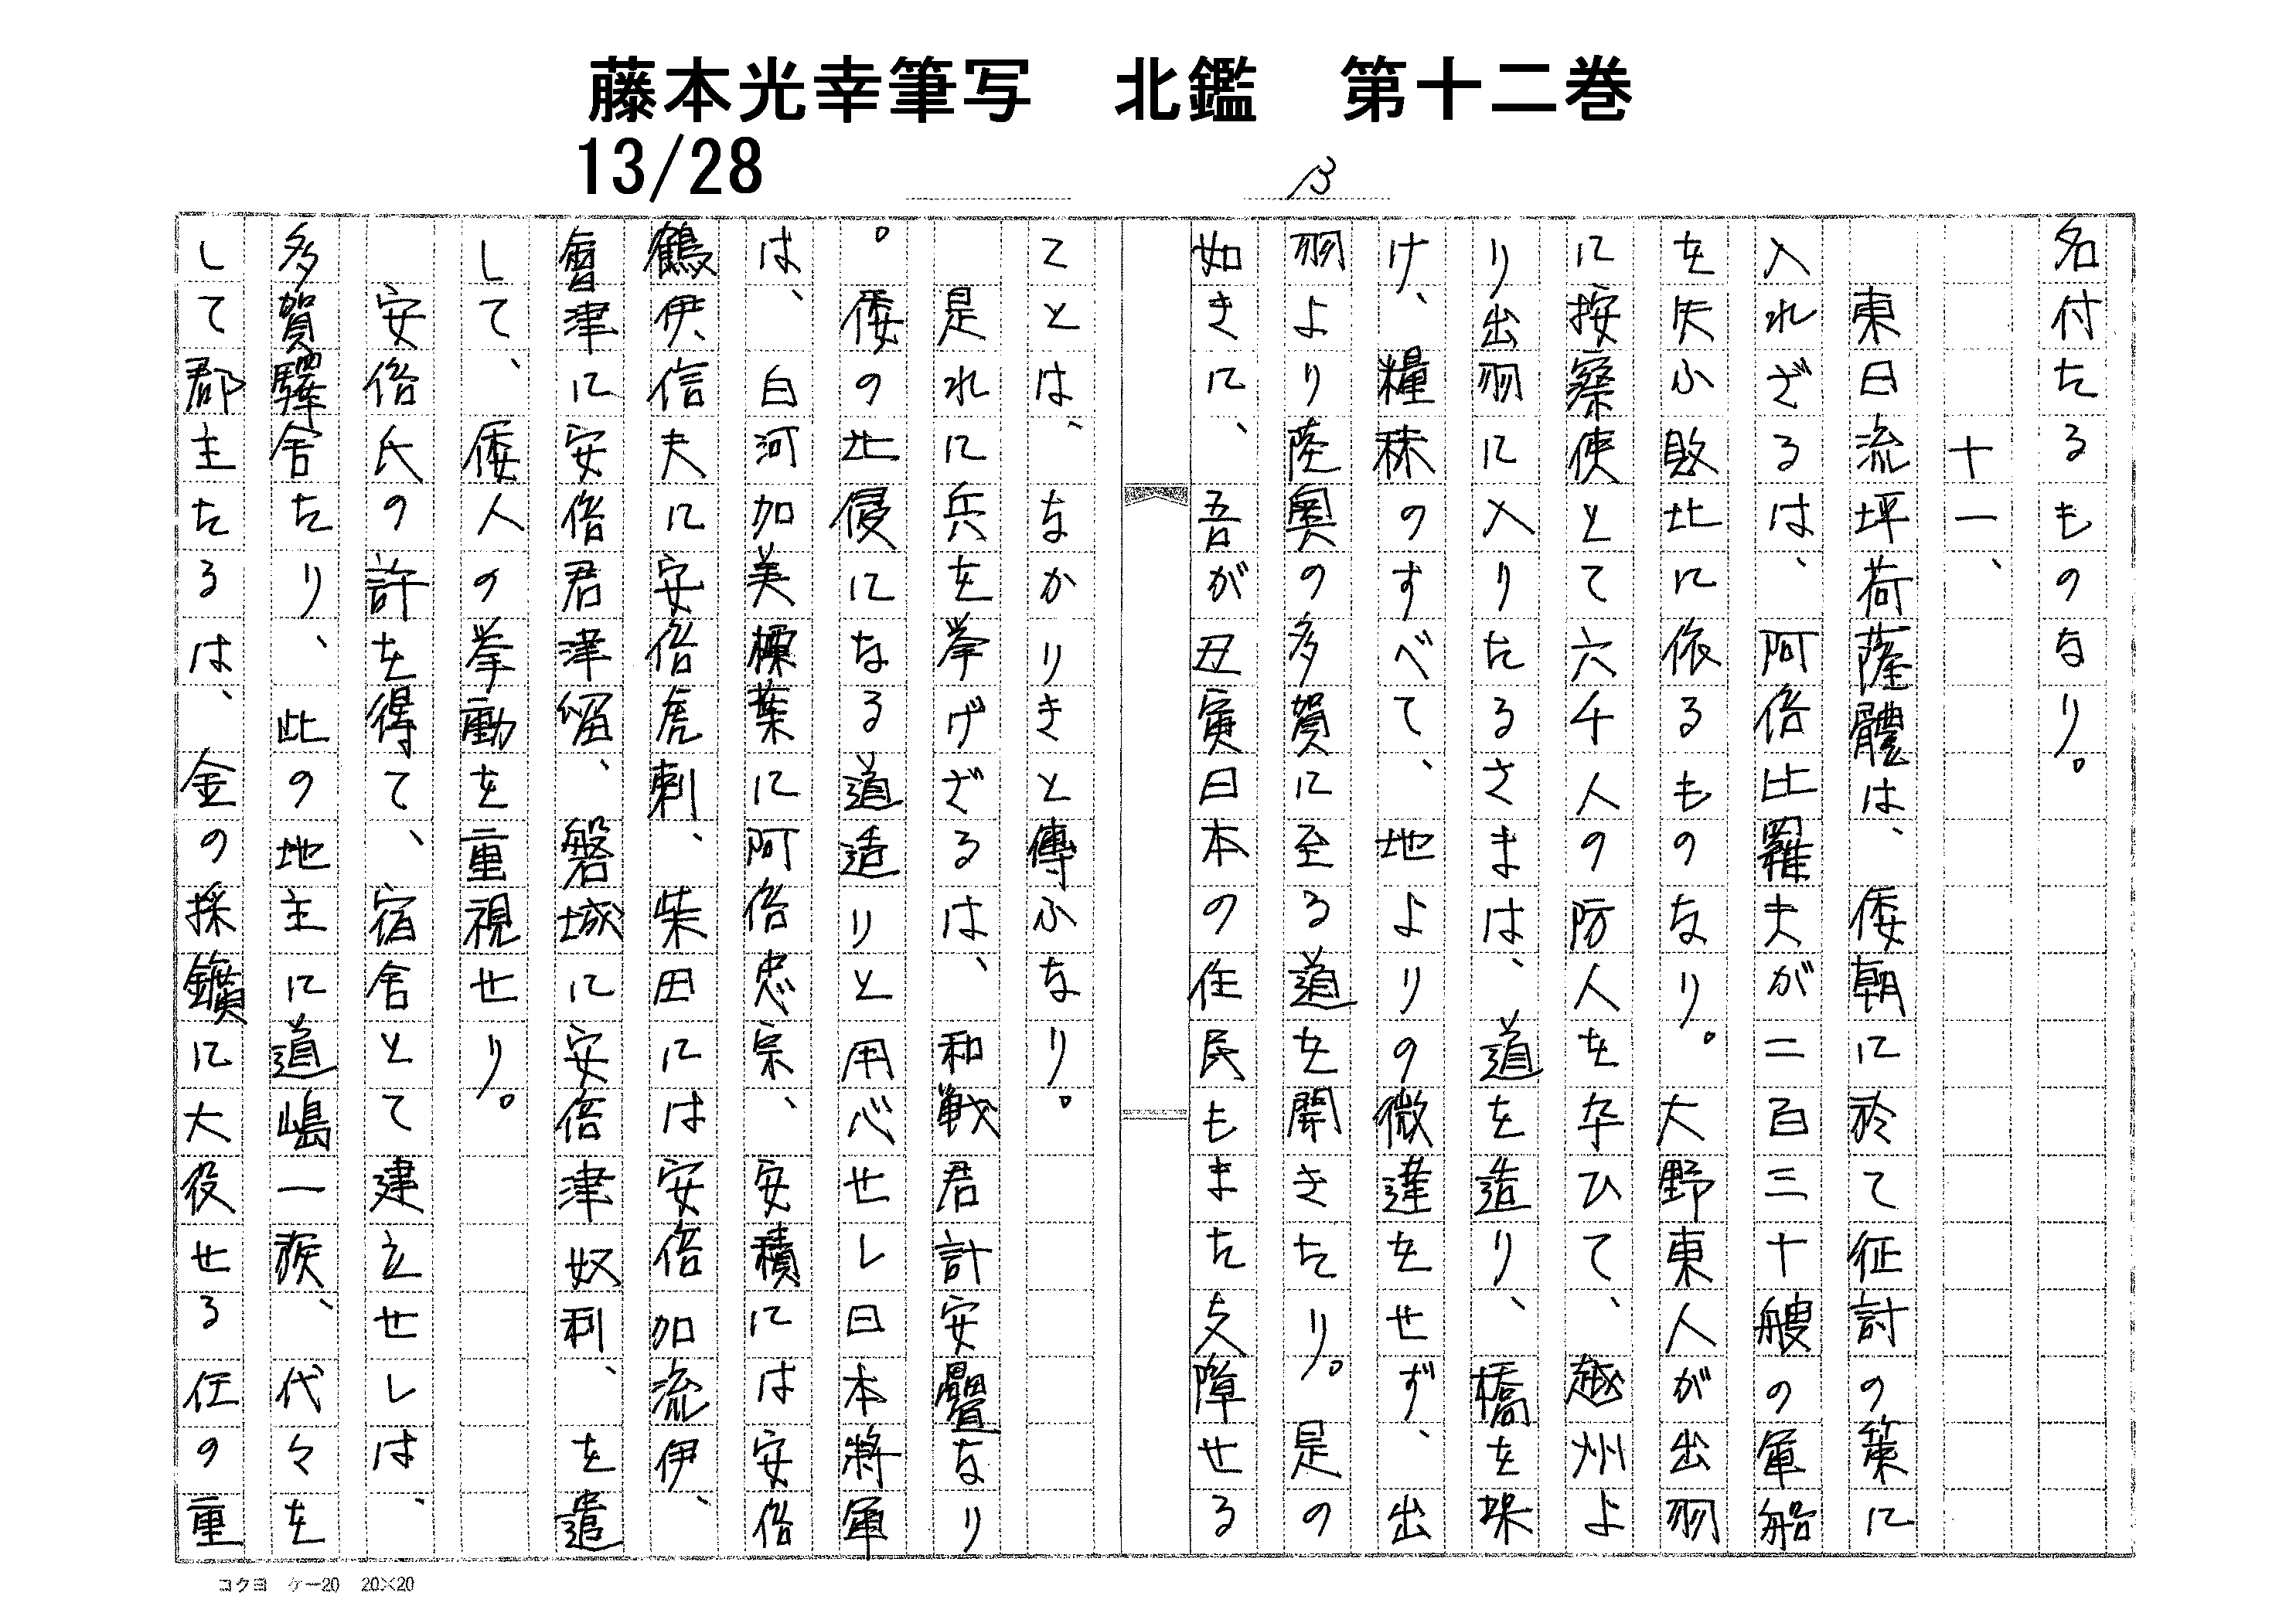 藤本光幸筆写　北鑑　第十二巻
13/28
13
名付たるものなり。
十一、
東日流坪荷薩體は、倭朝に於て征討の策に
入れざるは、阿倍比羅夫が二百三十艘の軍船
を失ふ敗北に依るものなり。大野東人が出羽
に按察使とて六千人の防人を卆ひて、越州よ
り出羽に入りたるさまは、道を造り、橋を架
け、糧秣のすべて、地よりの微達をせず、出
羽より陸奥の多賀に至る道を開きたり。是の
如きに、吾が丑寅日本の住民もまた支障せる
ことは、なかりきと傳ふなり。
是れに兵を挙げざるは、和戦君計安日疊なり
。倭の北侵になる道造りと用心せし日本將軍
は、白河加美檪葉に阿倍忠宗、安積には安倍
鶴伊、信夫に安倍虎刺、柴田には安倍加流伊、
會津に安倍君津留、磐城に安倍津奴利、を遣
して、倭人の挙動を重視せり。
安倍氏の許を得て、宿舎とて建立せしは、
多賀驛舎たり、此の地主に道嶋一族、代々を
して郡主たるは、金の採鑛に大役せる任の重
コクヨ　ケー20　20×20